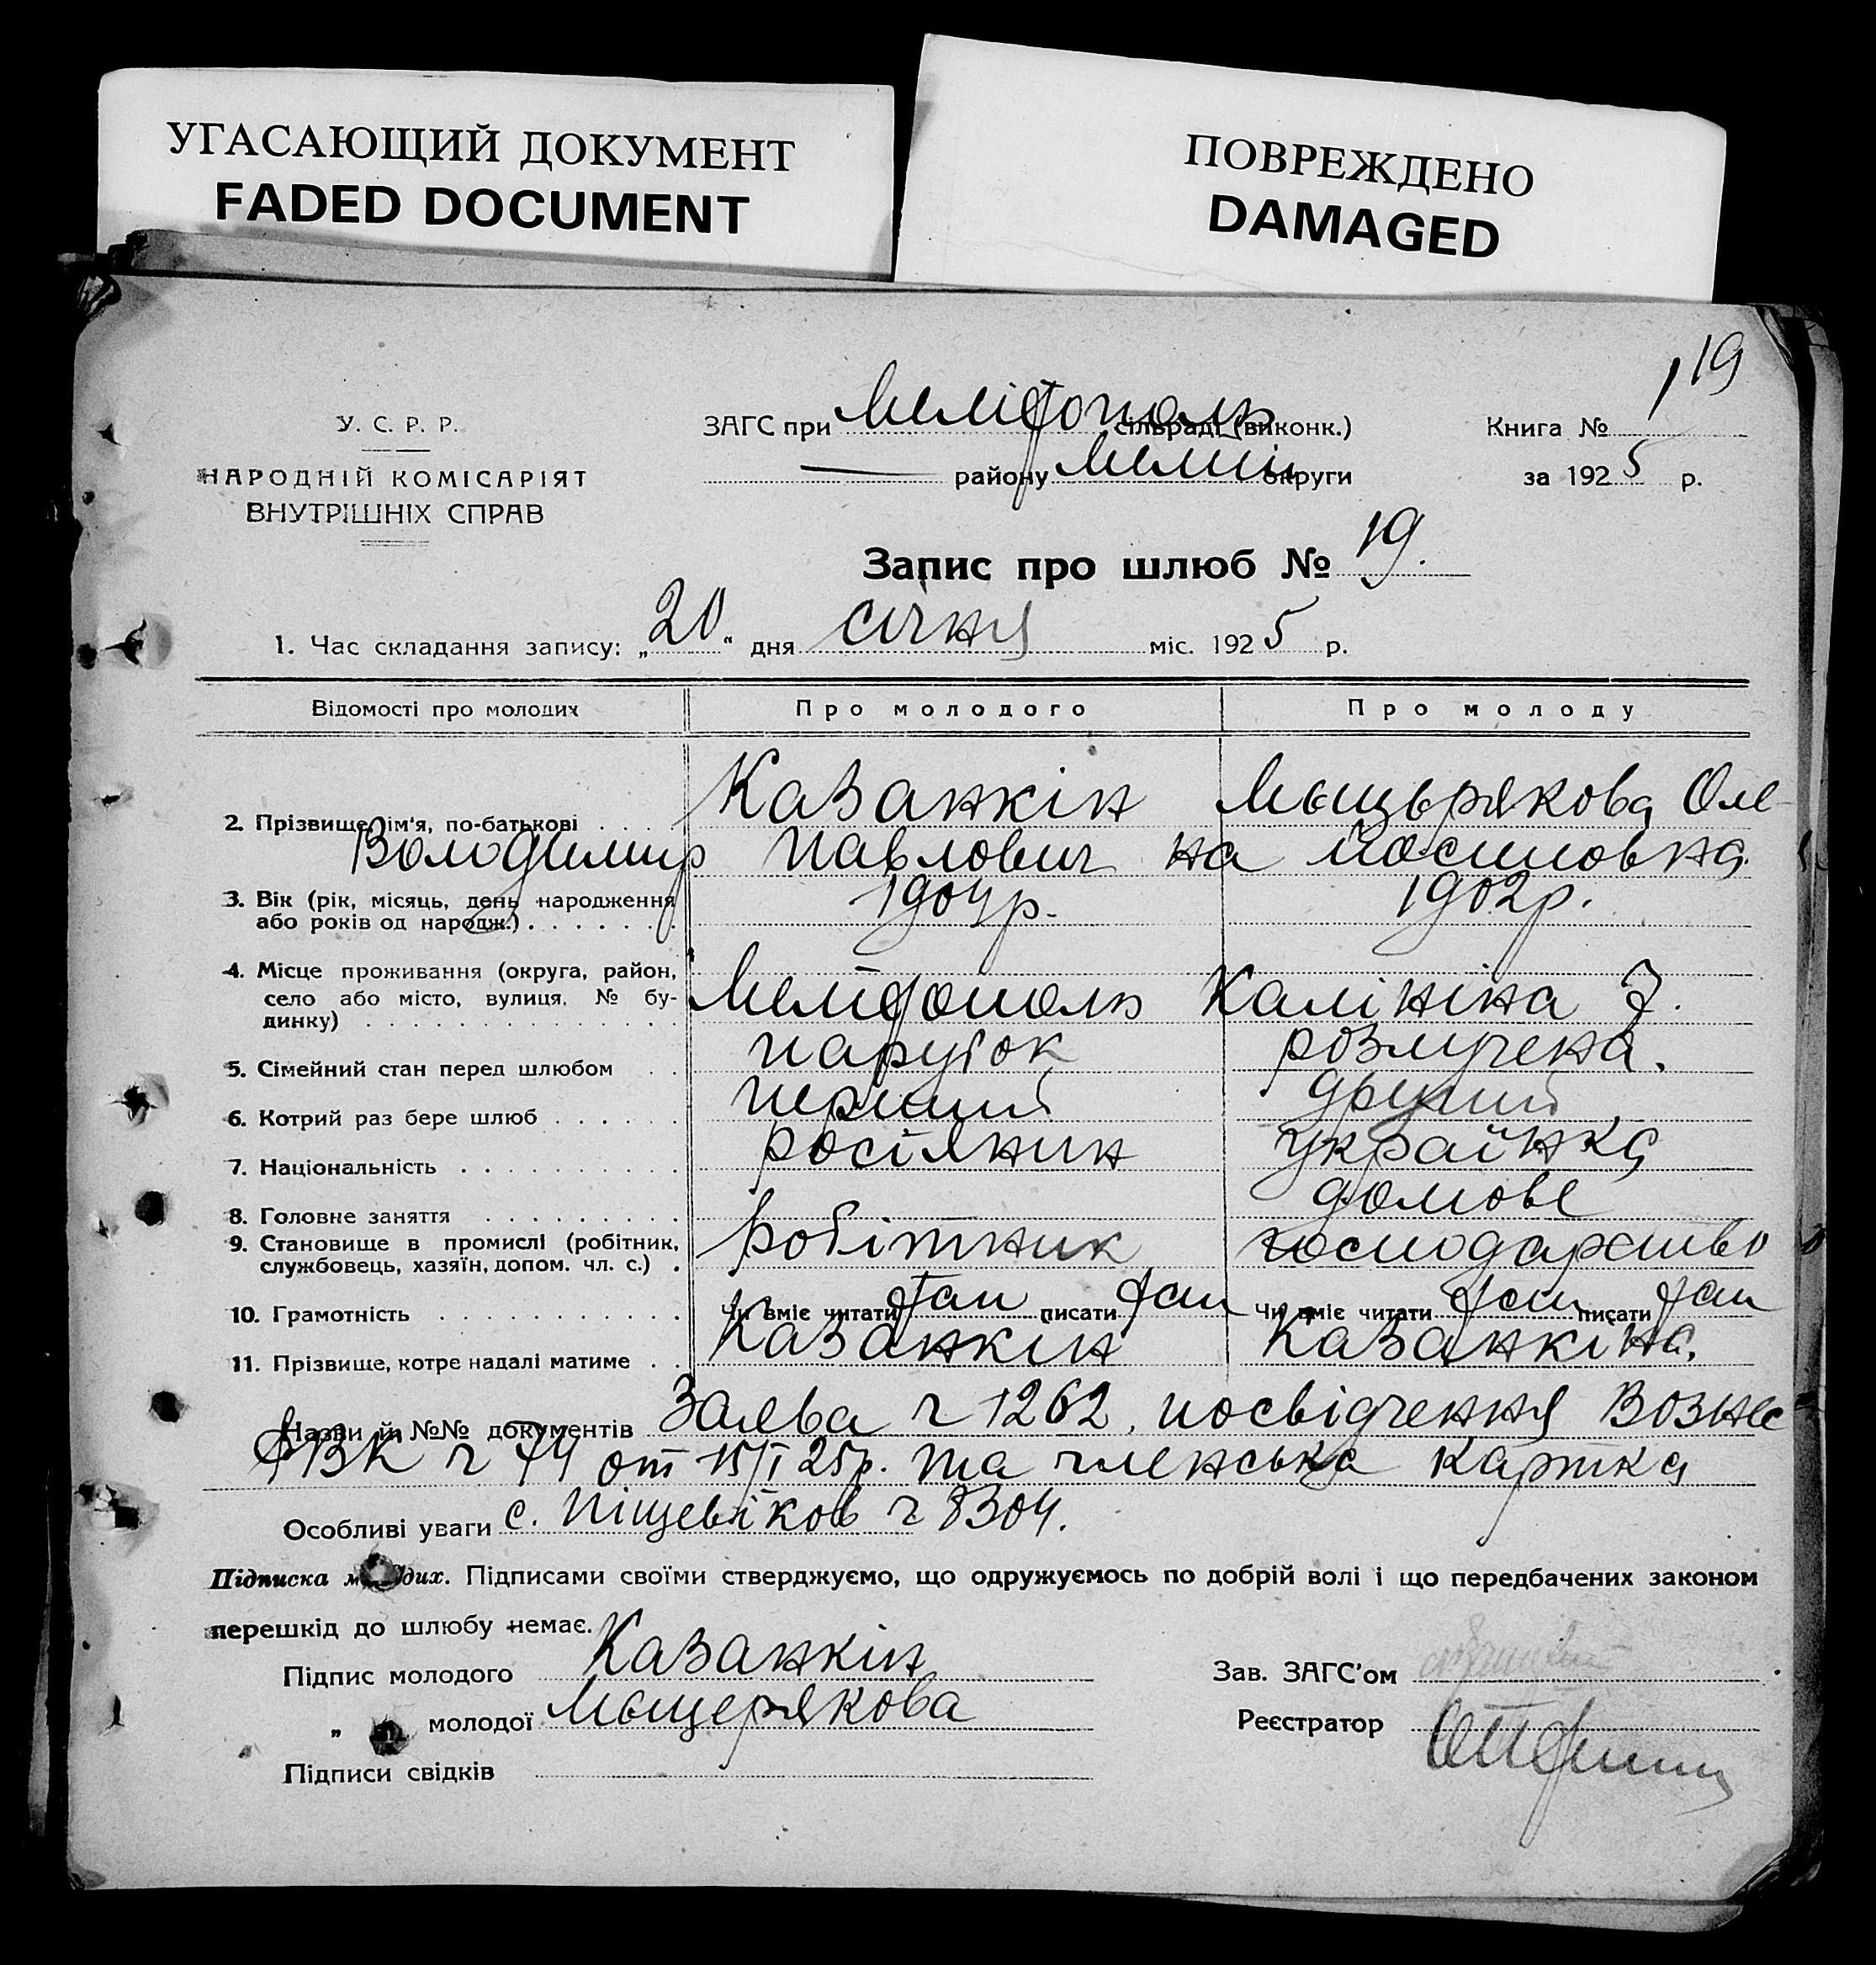 УГАСАЮЩИЙ ДОКУМЕНТ
FADED DOCUMENT
ПОВРЕЖДЕНО
DAMAGED
19
У. С. Р. Р.
НАРОДНІЙ КОМІСАРІЯТ
ВНУТРІШНІХ СПРАВ
ЗАГС при Мелітополь сільраді (виконк.)
району Меліт округи
Книга №
за 1925 р.
Запис про шлюб № 19.
1. Час складання запису: „20" дня січня міс. 1925 р.
Відомості про молодих Про молодого Про молоду
Казанкін Мєщерякова Оле-
2. Прізвище, ім'я, по-батькові
Володимир Павлович на Йосиповна.
3. Вік (рік, місяць, день народження або років од народж.) 1904р. 1902р.
4. Місце проживання (округа, район,
село або місто, вулиця, № бу-
динку) Мелітополь Калініна 7.
5. Сімейний стан перед шлюбом паруток розлучена.
6. Котрий раз бере шлюб перший другий
7. Національність росіянин українка
8. Головне заняття домове
9. Становище в промислі (робітник,
службовець, хазяїн, допом. чл. с.) робітник господарство
10. Грамотність Чи вміє читати так писати так Чи вміє читати так писати так
11. Прізвище, котре надалі матиме Казанкін Казанкіна.
Назви й №№ документів Заява ч 1262, посвідчення Вознес
РВК ч 74 от 15/I 25р. та членська картка
Особливі уваги с. Піщевіков ч 8304.
Підписка молодих. Підписами своїми стверджуємо, що одружуємось по добрій волі і що передбачених законом
перешкід до шлюбу немає.
Підпис молодого Казанкін
Зав. ЗАГС'ом
„ молодої Мєщерякова
Реєстратор
Підписи свідків